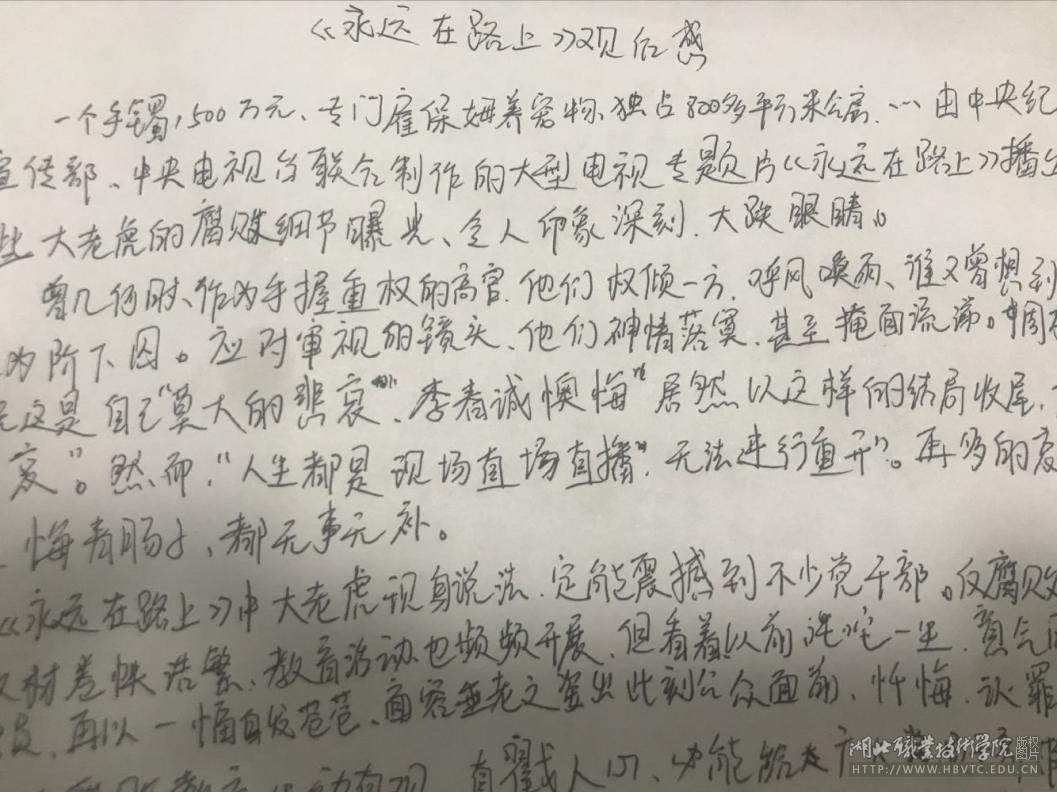 《永远在路上》观后感
一个手镯1500万元、专门雇保姆养宠物、独占800多平方米公房…由中央纪
宣传部、中央电视台联合制作的大型电视专题片《永远在路上》播出
些大老虎的腐败细节曝光、令人印象深刻、大跌眼睛。
曾几何时、作为手握重权的高官、他们权倾一方、呼风唤雨、谁又曾想到
为阶下囚。应对审视的镜头、他们神情落寞、甚至掩面流涕。周
这是自己"莫大的悲哀"、李春诚懊悔"居然以这样的结局收尾、
哀"。然而、"人生都是现场直场直播"、无法进行重开"。再多的哀
悔青肠子、都无事无补。
《永远在路上》中大老虎现身说法、定能震撼到不少党干部。反腐败
材卷帙浩繁、教育活动也频频开展、但看着以前诧咤一生、意气
员、再以一幅自发苍苍、面容垂老之姿出此刻公众面前、忏悔、认罪
人们、
湖北职业技术学院 版权图片
HTTP://WWW.HBVTC.EDU.CN